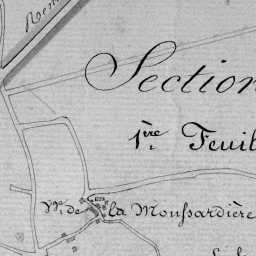 Section
1ère Feuil
Mn. de la Moussardière